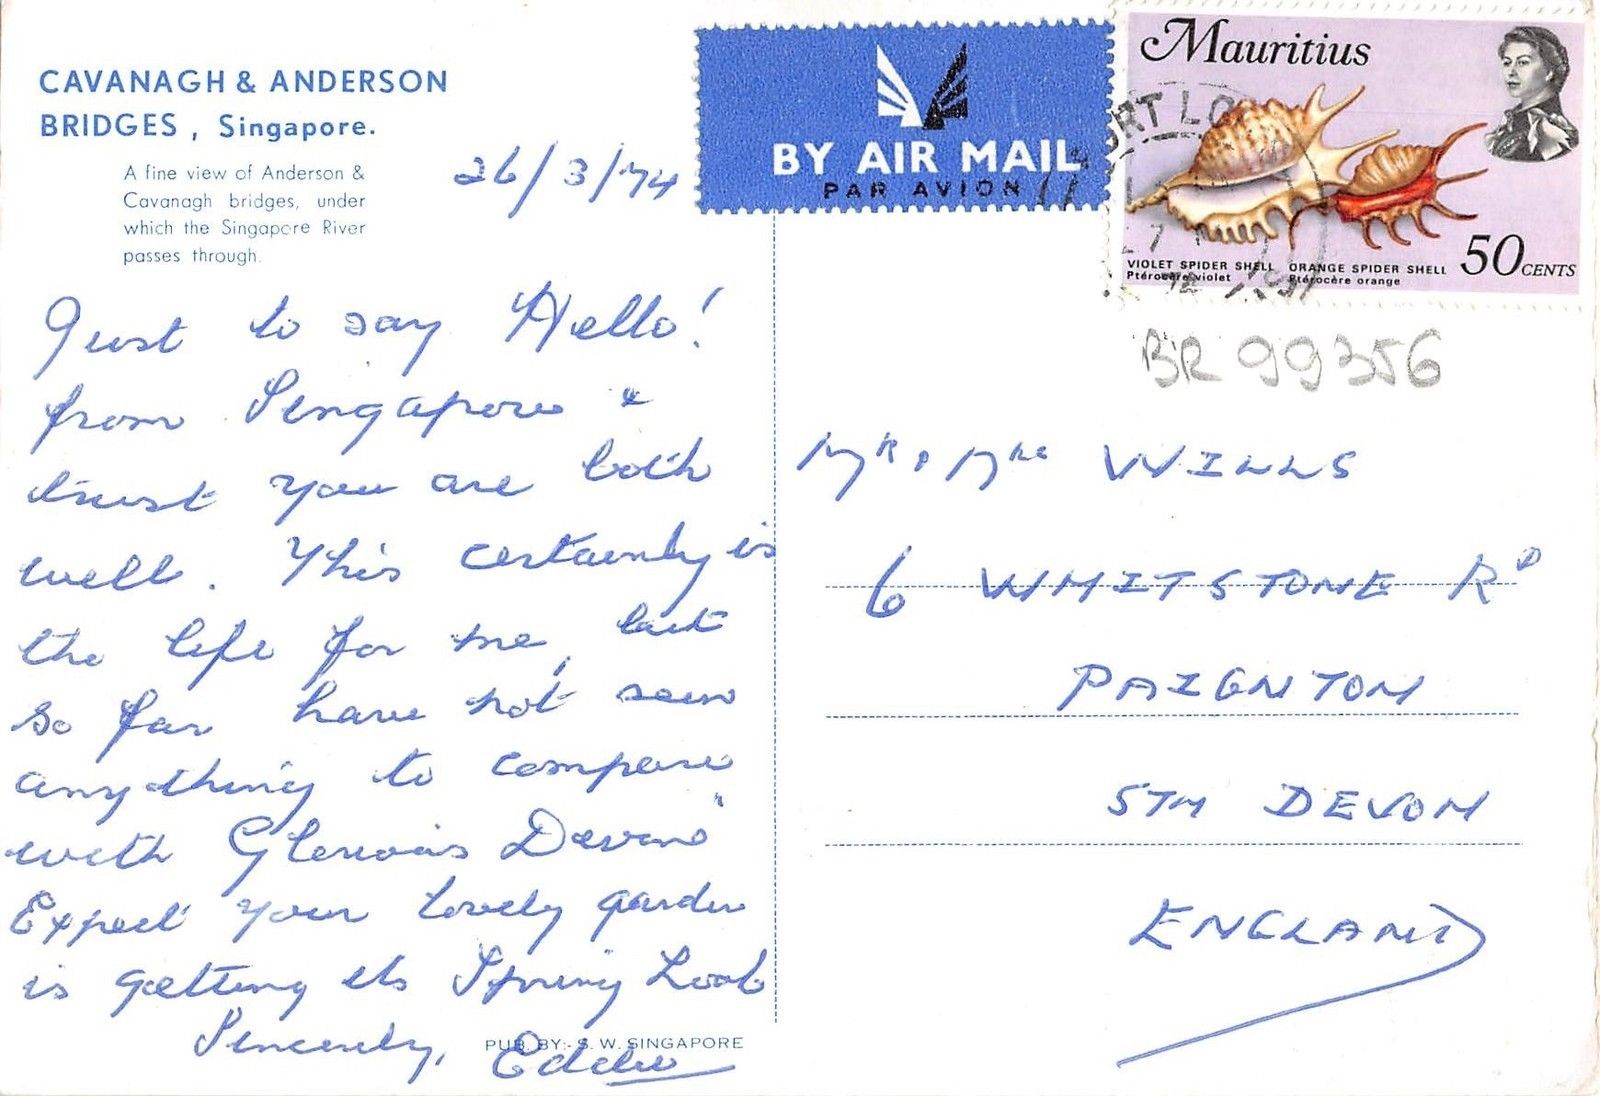 CAVANAGH & ANDERSON
BRIDGES , Singapore.
A fine view of Anderson &
Cavanagh bridges, under
which the Singapore River
passes through.
26/3/74
BY AIR MAIL
PAR AVION
Mauritius
VIOLET SPIDER SHELL ORANGE SPIDER SHELL
Ptérocère violet Ptérocère orange
50 CENTS
BR 99356
Just to say Hello!
from Singapore &
trust you are both
well. This certainly is
the life for me, but
so far have not seen
anything to compare
with Glorious Devon"
Expect your lovely garden
is getting its Spring Look
Sincerely, Eddie
PUB. BY:- S. W. SINGAPORE
MR & MRS WILLS
6 WHITSTONE RD
PAIGNTON
STH DEVON
ENGLAND